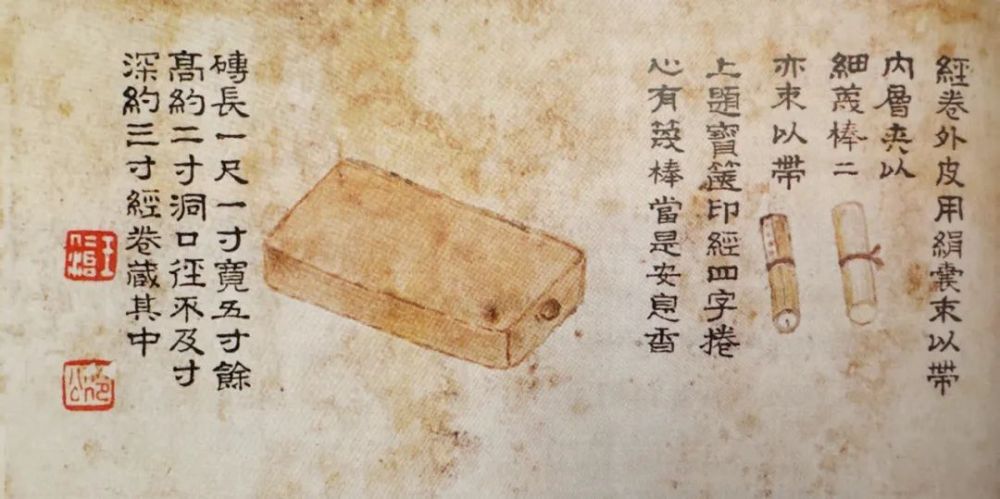 經卷外皮用絹囊束以帶
内層夾以
細篾棒二
亦束以帶
上題寶篋印經四字捲
心有篾棒當是安息香
磚長一尺一寸寬五寸餘
髙約二寸洞口徑不及寸
深約三寸經卷藏其中